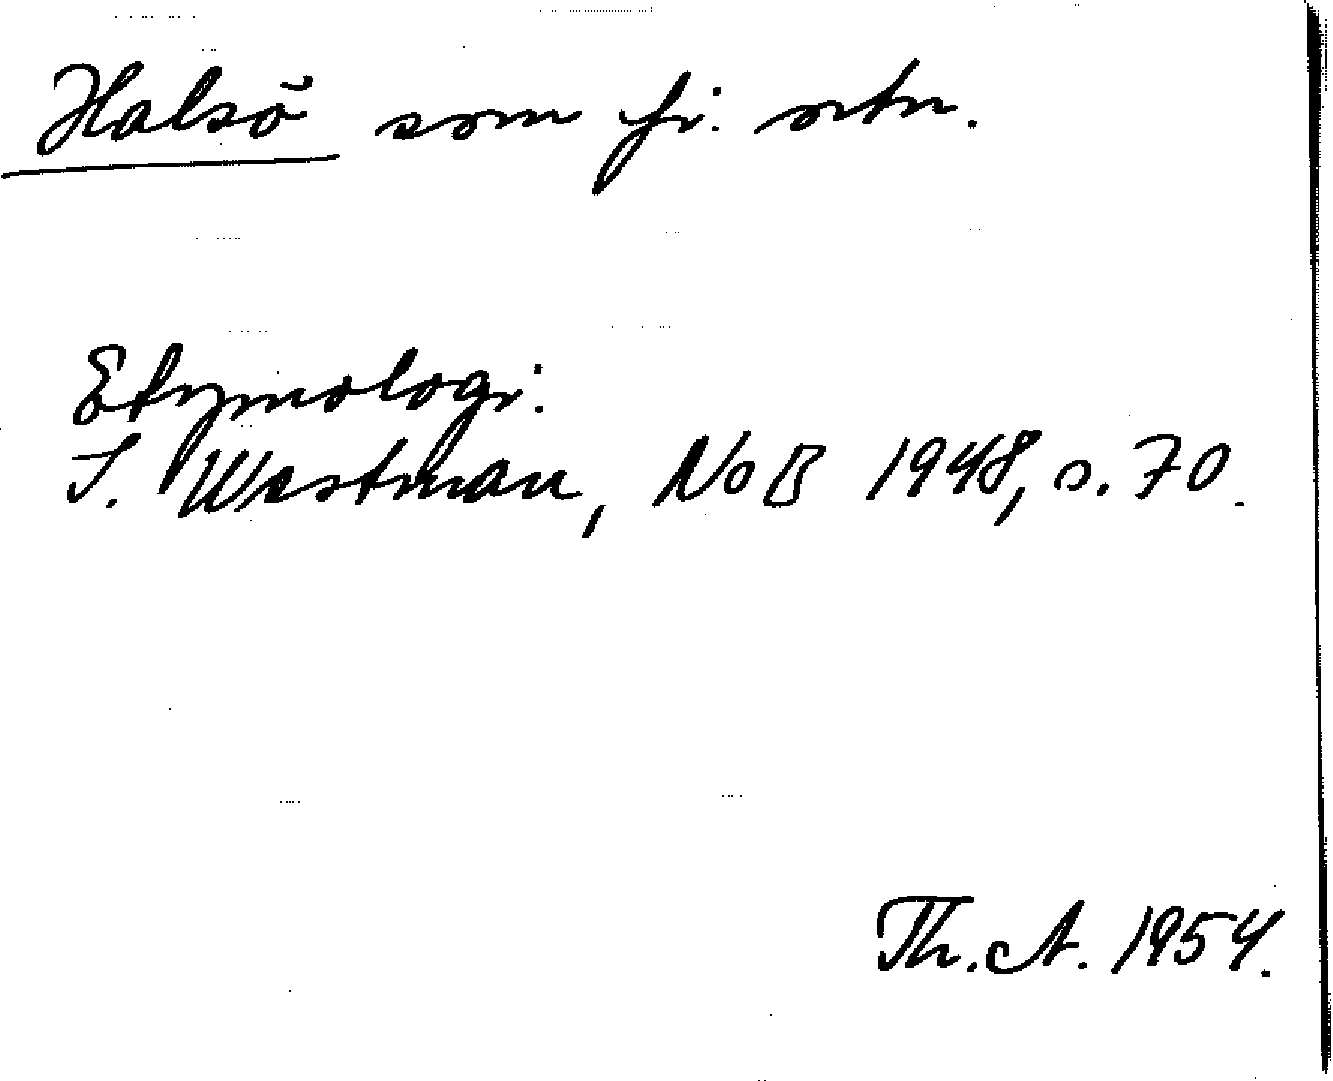 Halsö som fr. ortn.
Etymologi:
I. Westman, NoB 1948, s. 70.
Th. A. 1954.